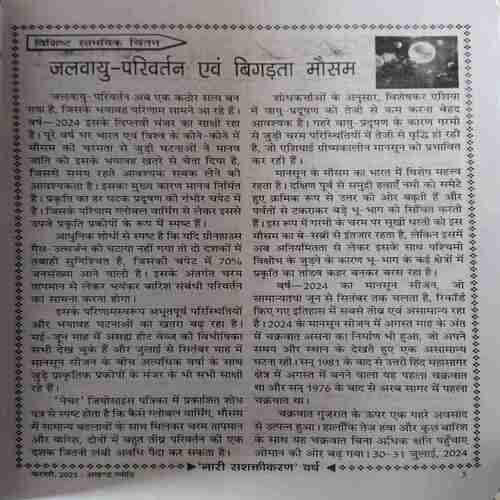 विशिष्ट सामयिक चिंतन
जलवायु-परिवर्तन एवं बिगड़ता मौसम
जलवायु-परिवर्तन अब एक कठोर सत्य बन
गया है, जिसके भयावह परिणाम सामने आ रहे हैं।
वर्ष—2024 इसके विप्लवी मंजर का साक्षी रहा
है। पूरे वर्ष भर भारत एवं विश्व के कोने-कोने में
मौसम की चरमता से जुड़ी घटनाओं ने मानव
जाति को इसके भयावह खतरे से चेता दिया है,
जिससे समय रहते आवश्यक सबक लेने की
आवश्यकता है। इसका मुख्य कारण मानव निर्मित
है। प्रकृति का हर घटक प्रदूषण की गंभीर चपेट में
है। जिसके परिणाम ग्लोबल वार्मिंग से लेकर इससे
उपजे प्रकृति प्रकोपों के रूप में स्पष्ट हैं।
आधुनिक शोधों से स्पष्ट है कि यदि ग्रीनहाउस
गैस-उत्सर्जन को घटाया नहीं गया तो दो दशकों में
तबाही सुनिश्चित है, जिसकी चपेट में 70%
जनसंख्या आने वाली है। इसके अंतर्गत चरम
तापमान से लेकर भयंकर बारिश संबंधी परिवर्तन
का सामना करना होगा।
इसके परिणामस्वरूप अभूतपूर्व परिस्थितियों
और भयावह घटनाओं का खतरा बढ़ रहा है।
मई-जून माह में असह्य हीट वेव्ज की विभीषिका
सभी देख चुके हैं और जुलाई से सितंबर माह में
मानसून सीजन के बीच अत्यधिक वर्षा के साथ
जुड़े प्राकृतिक प्रकोपों के मंजर के भी सभी साक्षी
रहे हैं।
'पेचर' जियोसाइंस पत्रिका में प्रकाशित शोध
पत्र से स्पष्ट होता है कि कैसे ग्लोबल वार्मिंग, मौसम
में सामान्य बदलावों के साथ मिलकर चरम तापमान
और बारिश, दोनों में बहुत तीव्र परिवर्तन की एक
दशक जितनी लंबी अवधि पैदा कर सकता है।
शोधकर्त्ताओं के अनुसार, विशेषकर एशिया
में वायु-प्रदूषण को तेजी से कम करना बेहद
आवश्यक है। गहरे वायु-प्रदूषण के कारण गरमी
से जुड़ी चरम परिस्थितियों में तेजी से वृद्धि हो रही
है, जो एशियाई ग्रीष्मकालीन मानसून को प्रभावित
कर रही हैं।
मानसून के मौसम का भारत में विशेष महत्त्व
रहता है। दक्षिण पूर्व से समुद्री हवाएँ नमी को समेटे
हुए क्रमिक रूप से उत्तर की ओर बढ़ती हैं और
पर्वतों से टकराकर बड़े भू-भाग को सिंचित करती
हैं। इस रूप में गरमी के चरम पर सूखी धरती को इस
मौसम का बे-सब्री से इंतजार रहता है, लेकिन इसमें
अब अनियमितता से लेकर इसके साथ पश्चिमी
विक्षोभ के जुड़ने के कारण भू-भाग के कई क्षेत्रों में
प्रकृति का तांडव कहर बनकर बरस रहा है।
वर्ष—2024 का मानसून सीजन, जो
सामान्यतया जून से सितंबर तक चलता है, रिकॉर्ड
किए गए इतिहास में सबसे तीव्र एवं असामान्य रहा
है। 2024 के मानसून सीजन में अगस्त माह के अंत
में चक्रवात असना का निर्माण भी हुआ, जो अपने
समय और स्थान के देखते हुए एक असामान्य
घटना रही। सन् 1981 के बाद से उत्तरी हिंद महासागर
क्षेत्र में अगस्त में बनने वाला यह पहला चक्रवात
था और सन् 1976 के बाद से अरब सागर में पहला
चक्रवात था।
चक्रवात गुजरात के ऊपर एक गहरे अवसाद
से उत्पन्न हुआ। हालाँकि तेज हवा और कुछ बारिश
के साथ यह चक्रवात बिना अधिक क्षति पहुँचाए
ओमान की ओर बढ़ गया। 30-31 जुलाई, 2024
'नारी सशक्तीकरण' वर्ष
फरवरी, 2025 : अखण्ड ज्योति
5